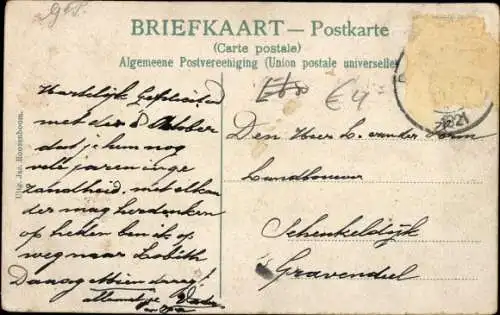 BRIEFKAART — Postkarte
(Carte postale)
Algemeene Postvereeniging (Union postale universelle
Hartelijk Gefeliciteerd
met den 8 October
dat je hem nog
vele jaren in ge
zondheid, met elkan
der mag herdenken
op heden ben ik op
weg naar Lobith
Daag
allemaal Vader
en opa
Den Heer L. van der
Landbouwer
Schenkeldijk
Gravendeel
Uitg. Jac. Roozenboom.